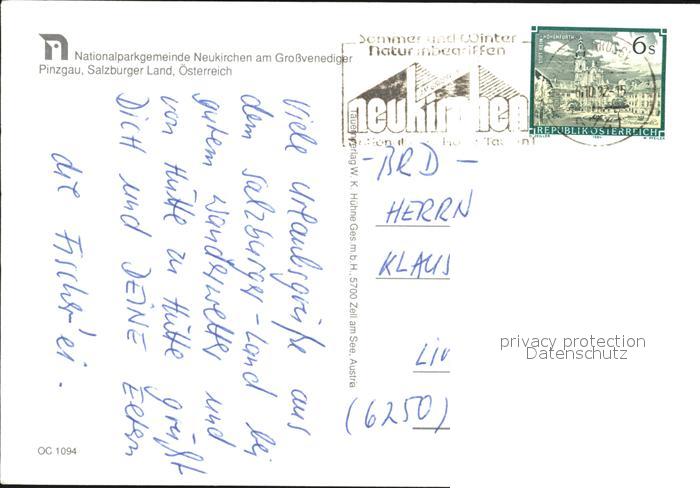 Nationalparkgemeinde Neukirchen am Großvenediger
Pinzgau, Salzburger Land, Österreich
Viele Urlaubsgrüße aus
dem Salzburger-Land bei
gutem Wanderwetter und
von Hütte zu Hütte grüßt
DICH und DEINE Eltern
die Fischer'ei.
OC 1094
Tauernverlag W. K. Hühne Ges.m.b.H., 5700 Zell am See, Austria
Sommer und Winter
Natur inbegriffen
neukirchen
6s
STIFT REIN-HOHENFURTH
REPUBLIK ÖSTERREICH
- BRD -
HERRN
KLAUS
(6250)
privacy protection
Datenschutz